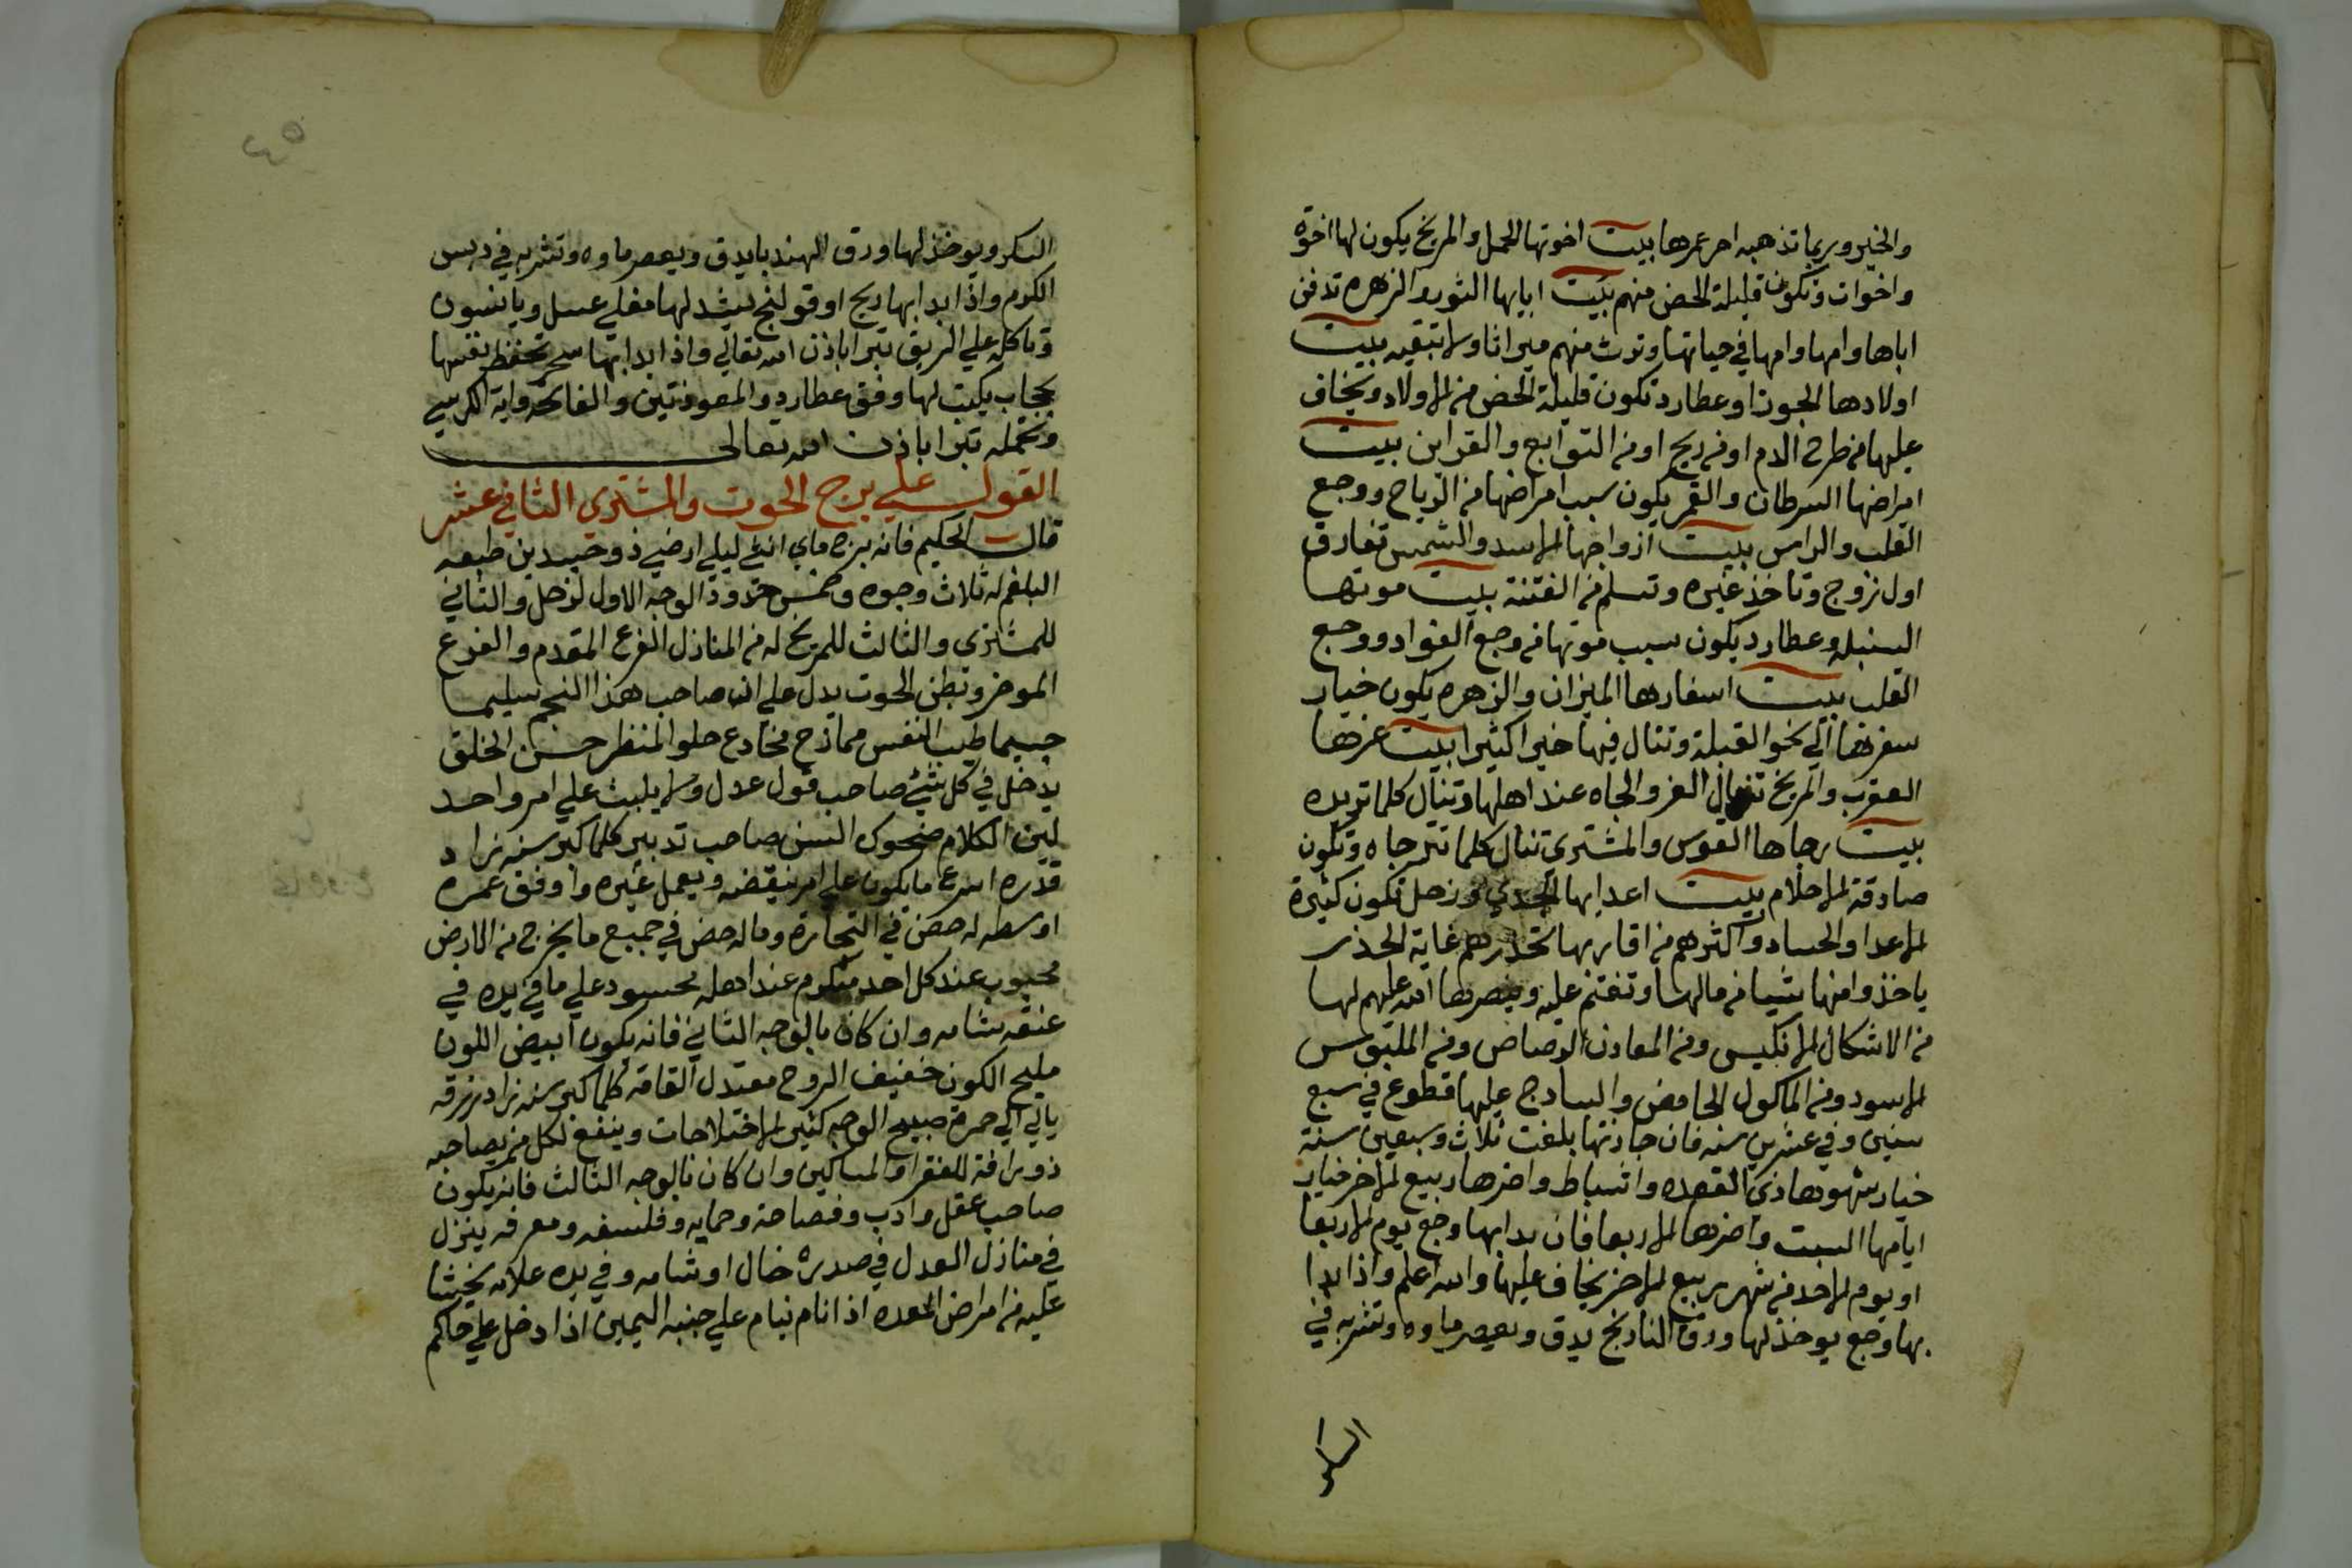 والخير وربما تذهبه اخر عمرها بيت اخوتها الحمل والمريخ يكون لها اخوة
واخوات وتكون قليلة الحض منهم بيت ابايها الثور والزهره تدفن
اباها وامها وامها في حياتها وتورث منهم ميراثا ولا تبقيه بيت
اولادها الجوزا وعطارد تكون قليلة الحض من الاولاد ويخاف
عليها من طرح الدم او من ريح او من التوابع والقراين بيت
امراضها السرطان والقمر يكون سبب امراضها من الرياح ووجع
القلب والراس بيت ازواجها الاسد والشمس تفارق
اول زوج وتاخذ غيره وتسلم من الفتنة بيت موتها
السنبله وعطارد يكون سبب موتها من وجع الفواد ووجع
القلب بيت اسفارها الميزان والزهره يكون خيار
سفرتها الي نحو القبلة وتنال فيها خيرا كثيرا بيت عزها
العقرب والمريخ تنال العز والجاه عند اهلها وتنال كلما تريده
بيت رجاها القوس والمشتري تنال كلما تترجاه وتكون
صادقة الاحلام بيت اعدايها الجدي وزحل تكون كثيرة
الاعدا والحساد واكثرهم من اقاربها تحذرهم غاية الحذر
ياخذوا منها شيا من مالها وتغتم عليه وينصرها الله عليهم لها
من الاشكال الانكيس ومن المعادن الرصاص ومن الملبوس
الاسود ومن الماكول الحامض والسادج عليها قطوع في سبع
سنين وفي عشرين سنه فان جازتها بلغت ثلاث وسبعين سنة
خيار شهورها ذي القعده واشباط واضرها ربيع الاخر خيار
ايامها السبت واضرها الاربعا فان بدابها وجع يوم الاربعا
او يوم الاحد من شهر ربيع الاخر يخاف عليها والله اعلم واذا بدا
بها وجع يوخذ لها ورق النارنج يدق ويعصر ماوه وتشربه في
السكر
السكر ويوخذ لها ورق الهندبا يدق ويعصر ماوه وتشربه في دبس
الكرم واذا بدابها ريح او قولنج يشد لها مغلي عسل ويانسون
وتاكله علي الريق تبرا باذن الله تعالي واذا بدابها سحر تحفظ نفسها
بحجاب يكتب لها وفق عطارد والمعوذتين والفاتحه واية الكرسي
وتحمله تبرا باذن الله تعالى
القول علي برج الحوت والمشتري الثاني عشر
قال الحكيم فانه برج ماي انثي ليلي ارضي ذو جسدين طبعه
البلغم له ثلاث وجوه وخمس حدود الوجه الاول لزحل والثاني
للمشتري والثالث للمريخ له من المنازل الفرع المقدم والفرع
الموخر وبطن الحوت يدل علي ان صاحب هذا النجم سليما
جسيما طيب النفس ممازح مخادع حلو المنظر حسن الخلق
يدخل في كل شئ صاحب قول عدل ولا يلبث علي امر واحد
لين الكلام ضحوك السن صاحب تدبير كلما كبر سنه زاد
قدره اسرع ما يكون علي امر ينقضه ويعمل غيره واوفق عمره
اوسطه له حض في التجارة وماله حض في جميع ما يخرج من الارض
محبوب عند كل احد متكرم عند اهله محسود علي ما في يده في
عنقه شامه وان كان بالوجه الثاني فانه يكون ابيض اللون
مليح الكون خفيف الروح معتدل القامة كلما كبر سنه زاد رزقه
يالي الي حمرة صبيح الوجه كثير الاختلاجات وينفع لكل من يصاحبه
ذو رافة للفقرا والمساكين وان كان بالوجه الثالث فانه يكون
صاحب عقل وادب وفصاحة وحمايه وفلسفه ومعرفه ينزل
في منازل العدل في صدره خال او شامه وفي يده علامه يخشا
عليه من امراض المعده اذا نام ينام علي جنبه اليمين اذا دخل علي حاكم